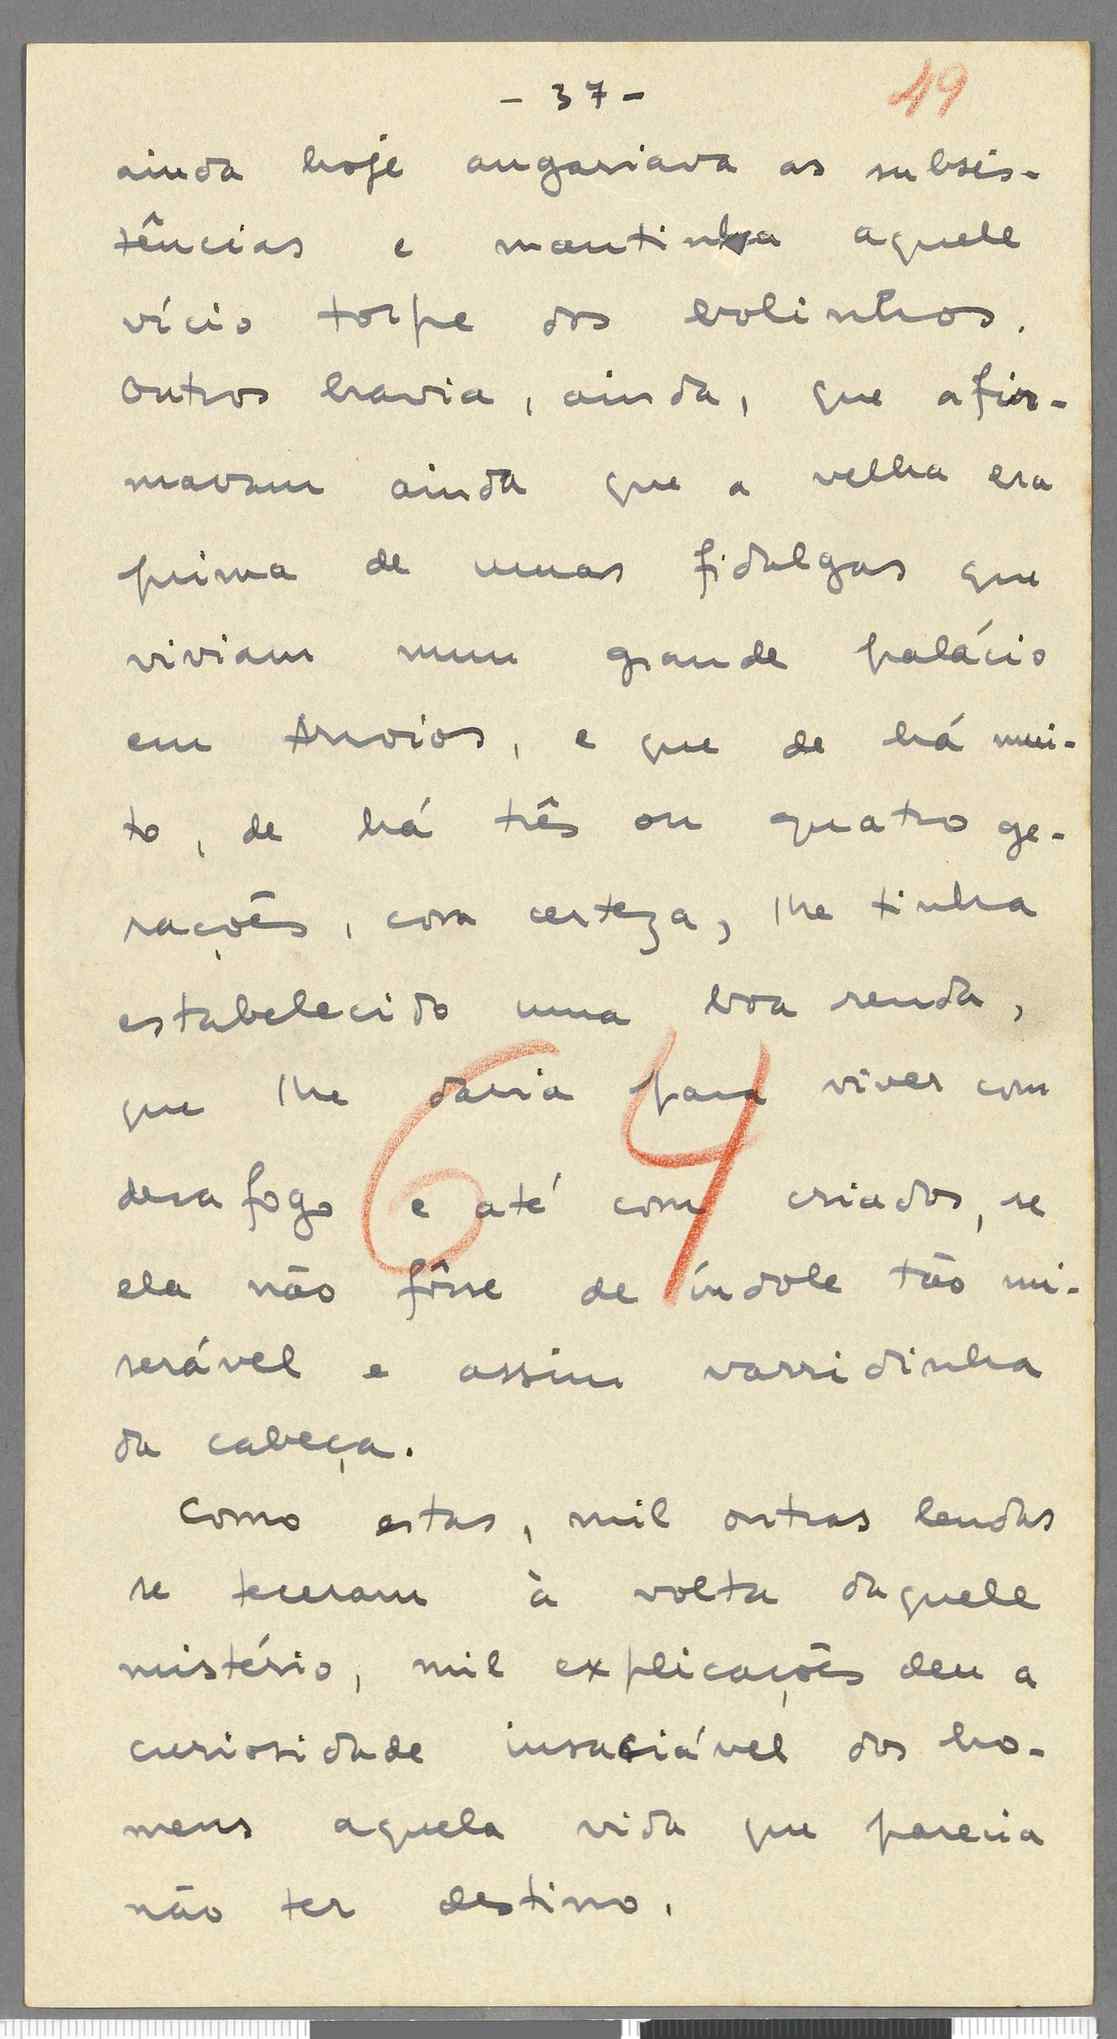 - 37 - 49
ainda hoje angariava as subsis-
tências e mantinha aquele
vício torpe dos bolinhos.
Outros havia, ainda, que afir-
mavam ainda que a velha era
prima de umas fidalgas que
viviam num grande palácio
em, e que de há mui-
to, de há três ou quatro ge-
rações, com certeza, lhe tinha
estabelecido uma boa renda,
que lhe daria para viver com
desafogo e até com criados, se
ela não fôsse de índole tão mi-
serável e assim varridinha
da cabeça.
Como estas, mil outras lendas
se teceram à volta daquele
mistério, mil explicações deu a
curiosidade insaciável dos ho-
mens aquela vida que parecia
não ter destino.
64